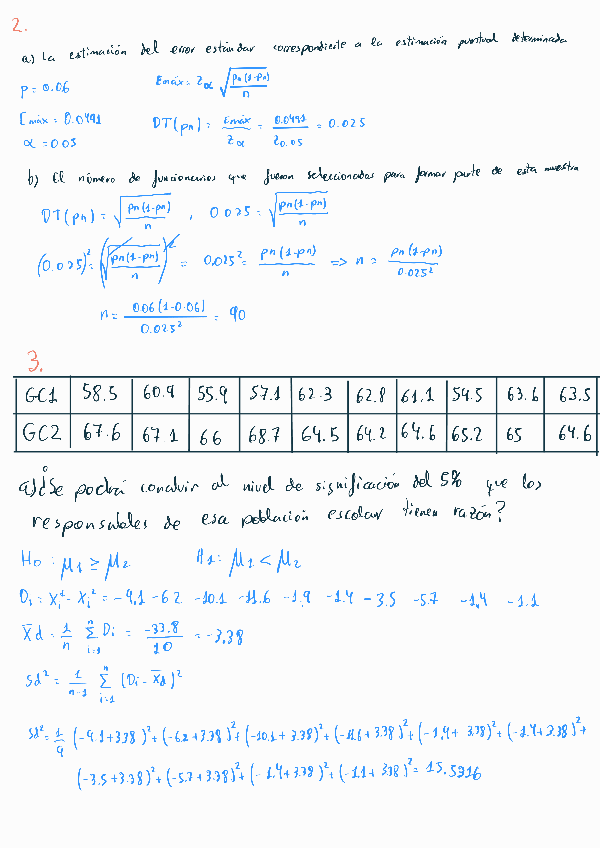 2.
a) La estimación del error estándar correspondiente a la estimación puntual determinada
p = 0.06    Emáx = Zα √(pn(1-pn)/n)
Emáx = 0.0491    DT(pn) = Emáx/Zα = 0.0491/Z0.05 = 0.025
α = 0.05
b) El número de funcionarios que fueron seleccionados para formar parte de esta muestra
DT(pn) = √(pn(1-pn)/n) , 0.025 = √(pn(1-pn)/n)
(0.025)² = (√(pn(1-pn)/n))² = 0.025² = pn(1-pn)/n => n = pn(1-pn)/0.025²
n = 0.06(1-0.06)/0.025² = 90
3.
GC1 58.5 60.9 55.9 57.1 62.3 62.8 61.1 54.5 63.6 63.5
GC2 67.6 67.1 66 68.7 64.5 64.2 64.6 65.2 65 64.6
a) ¿Se podrá concluir al nivel de significación del 5% que los
responsables de esa población escolar tienen razón?
H0: μ1 ≥ μ2    H1: μ1 < μ2
Di = Xi¹ - Xi² = -9,1 -6.2 -10.1 -11.6 -1,9 -1.4 -3.5 -5.7 -1,4 -1.1
X̄d = 1/n Σ(i=1, n) Di = -33.8/10 = -3,38
Sd² = 1/(n-1) Σ(i=1, n) (Di - X̄d)²
Sd² = 1/9 (-9.1+3.38)² + (-6.2+3.38)² + (-10.1+3.38)² + (-11.6+3.38)² + (-1,9+3.38)² + (-1.4+3.38)² +
(-3.5+3.38)² + (-5.7+3.38)² + (-1.4+3.38)² + (-1.1+3.38)² = 15.5916